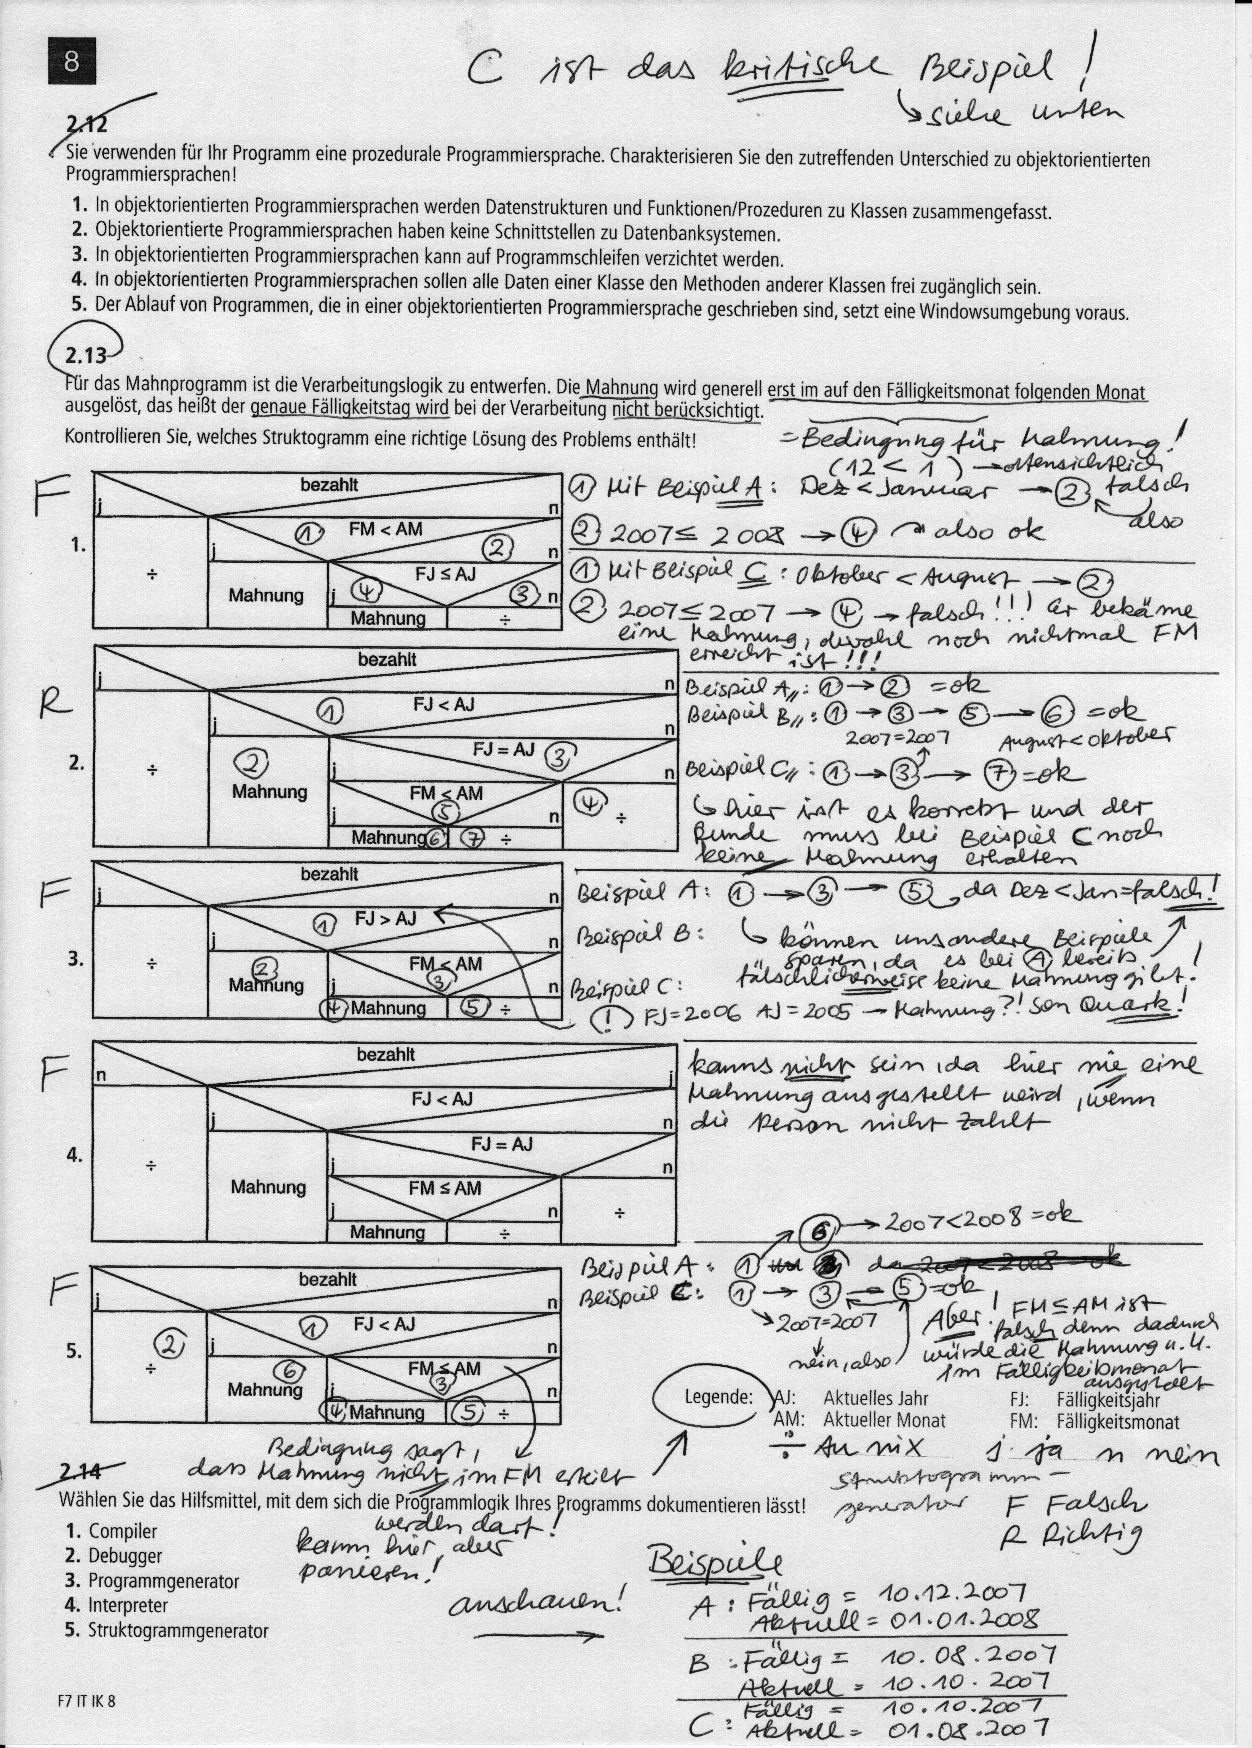 8
C ist das kritische Beispiel!
↳ siehe unten
2.12
Sie verwenden für Ihr Programm eine prozedurale Programmiersprache. Charakterisieren Sie den zutreffenden Unterschied zu objektorientierten
Programmiersprachen!
1. In objektorientierten Programmiersprachen werden Datenstrukturen und Funktionen/Prozeduren zu Klassen zusammengefasst.
2. Objektorientierte Programmiersprachen haben keine Schnittstellen zu Datenbanksystemen.
3. In objektorientierten Programmiersprachen kann auf Programmschleifen verzichtet werden.
4. In objektorientierten Programmiersprachen sollen alle Daten einer Klasse den Methoden anderer Klassen frei zugänglich sein.
5. Der Ablauf von Programmen, die in einer objektorientierten Programmiersprache geschrieben sind, setzt eine Windowsumgebung voraus.
2.13
Für das Mahnprogramm ist die Verarbeitungslogik zu entwerfen. Die Mahnung wird generell erst im auf den Fälligkeitsmonat folgenden Monat
ausgelöst, das heißt der genaue Fälligkeitstag wird bei der Verarbeitung nicht berücksichtigt.
Kontrollieren Sie, welches Struktogramm eine richtige Lösung des Problems enthält!
= Bedingung für Mahnung!
(12 < 1) → offensichtlich
falsch
also
F
1.
bezahlt
j
n
① FM < AM
j
② n
÷
Mahnung
FJ ≤ AJ
j ④
③ n
Mahnung
÷
① Mit Beispiel A: Dez < Januar → ②
② 2007 ≤ 2008 → ④ → also ok
① Mit Beispiel C: Oktober < August → ②
② 2007 ≤ 2007 → ④ → falsch!!! Er bekäme
eine Mahnung, obwohl noch nichtmal FM
erreicht ist!!!
R
2.
bezahlt
j
n
① FJ < AJ
j
n
÷
② Mahnung
FJ = AJ ③
j
n
FM < AM
⑤
j
n
④ ÷
Mahnung ⑥
⑦ ÷
Beispiel A: ① → ② = ok
Beispiel B: ① → ③ → ⑤ → ⑥ = ok
2007=2007
August < Oktober
Beispiel C: ① → ③ → ⑦ = ok
↳ hier ist es korrekt und der
Kunde muss bei Beispiel C noch
keine Mahnung erhalten
F
3.
bezahlt
j
n
① FJ > AJ
j
n
÷
② Mahnung
FM < AM
③
j
n
④ Mahnung
⑤ ÷
Beispiel A: ① → ③ → ⑤, da Dez < Jan = falsch!
Beispiel B: ↳ können uns andere Beispiele
sparen, da es bei A bereits
fälschlicherweise keine Mahnung gibt!
Beispiel C:
(!) FJ=2006 AJ=2005 → Mahnung?! Son Quark!
F
4.
bezahlt
n
j
FJ < AJ
j
n
÷
Mahnung
FJ = AJ
j
n
FM ≤ AM
j
n
÷
Mahnung
÷
kanns nicht sein, da hier nie eine
Mahnung ausgestellt wird, wenn
die Person nicht zahlt
F
5.
bezahlt
j
n
① FJ < AJ
j
n
② ÷
⑥ Mahnung
FM ≤ AM
③
j
n
④ Mahnung
⑤ ÷
⑥ → 2007<2008 = ok
Beispiel A: ① da 2007 < 2008 ok
Beispiel C: ① → ③ → ⑤ = ok
2007=2007
nein, also
Aber! FM ≤ AM ist
falsch denn dadurch
würde die Mahnung u.U.
im Fälligkeitsmonat
ausgestellt
Legende:
AJ: Aktuelles Jahr
FJ: Fälligkeitsjahr
AM: Aktueller Monat
FM: Fälligkeitsmonat
÷ tu nix
j ja n nein
F Falsch
R Richtig
Bedingung sagt,
dass Mahnung nicht im FM erteilt
werden darf!
kann hier aber
passieren!
2.14
Wählen Sie das Hilfsmittel, mit dem sich die Programmlogik Ihres Programms dokumentieren lässt!
Struktogramm-
generator
1. Compiler
2. Debugger
3. Programmgenerator
4. Interpreter
5. Struktogrammgenerator
anschauen!
→
Beispiele
A: Fällig = 10.12.2007
Aktuell = 01.01.2008
B: Fällig = 10.08.2007
Aktuell = 10.10.2007
C: Fällig = 10.10.2007
Aktuell = 01.08.2007
F7 IT IK 8